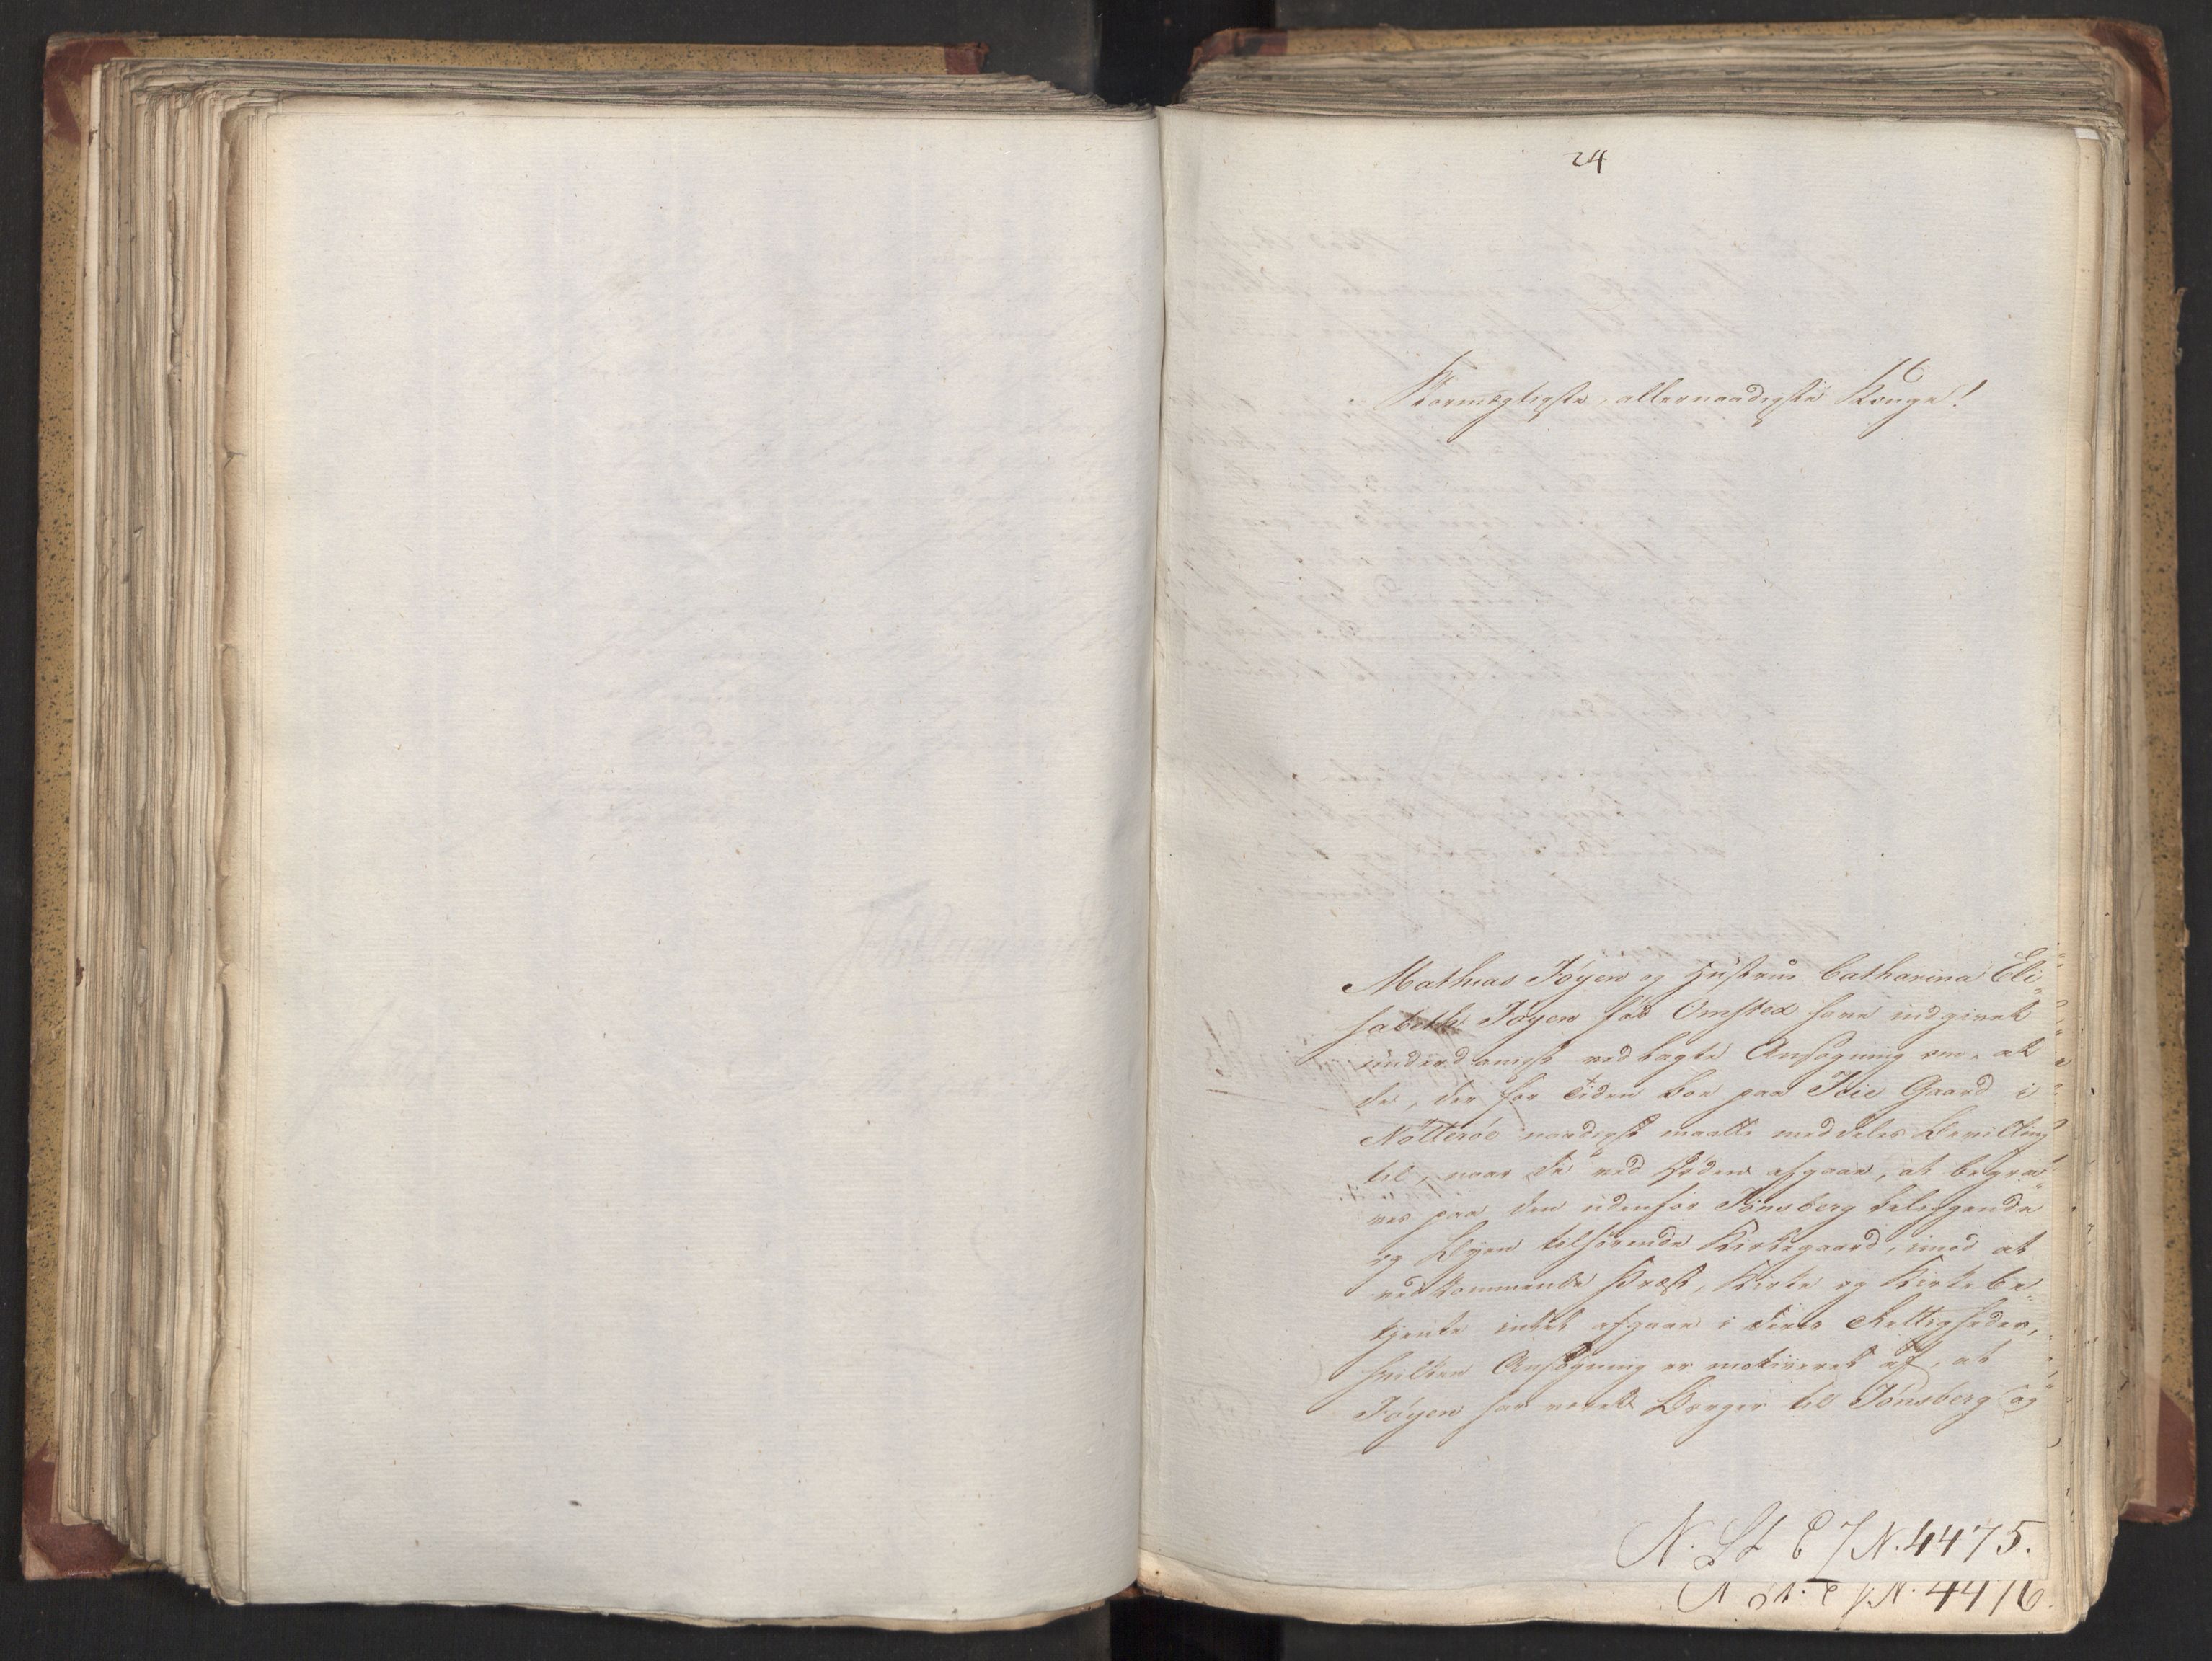 24
Stormægtigste, allernaadigste Konge!
Mathias Föyen og Hustrue Catharina Eli-
sabeth Föyen föd Omsted have indgivet
underdanigst vedlagte Ansögning om, at
de, der for Tiden boe paa Gaard i
Nötteröe naadigst maatte meddeles Bevilling
til, naar de ved Döden afgaae, at begra-
ves paa den udenfor Tönsberg beliggende
og Byen tilhörende Kirkegaard, imod at
vedkommende Præst, Kirke og Kirkebe-
tjente intet afgaaer i deres Rettigheder,
hvilken Ansögning er motiveret af, at
Föyen har været Borger til Tönsberg og
N. St. E. / N. 4475.
N. St. E / N. 4476.